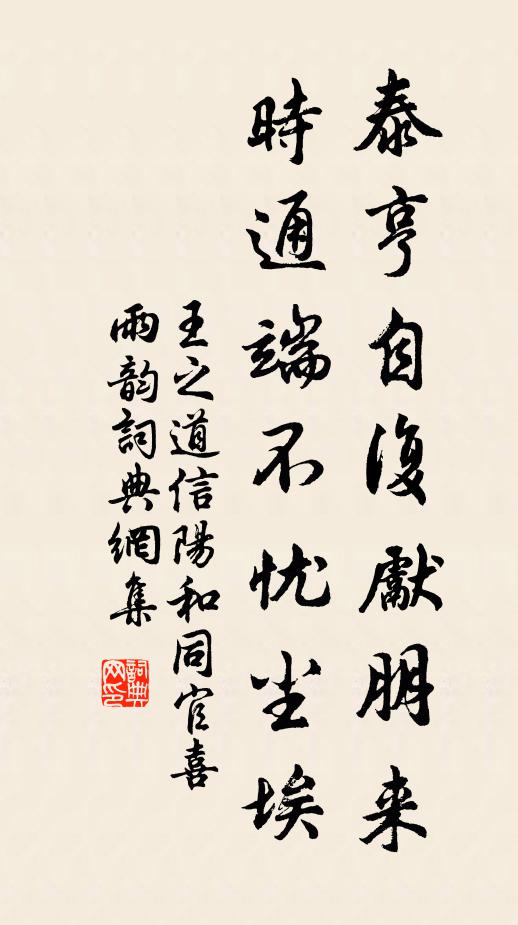 泰亨自復獻朋来
時通端不忧尘埃
王之道信陽和同官喜
雨韵詞典網集
詞典网印